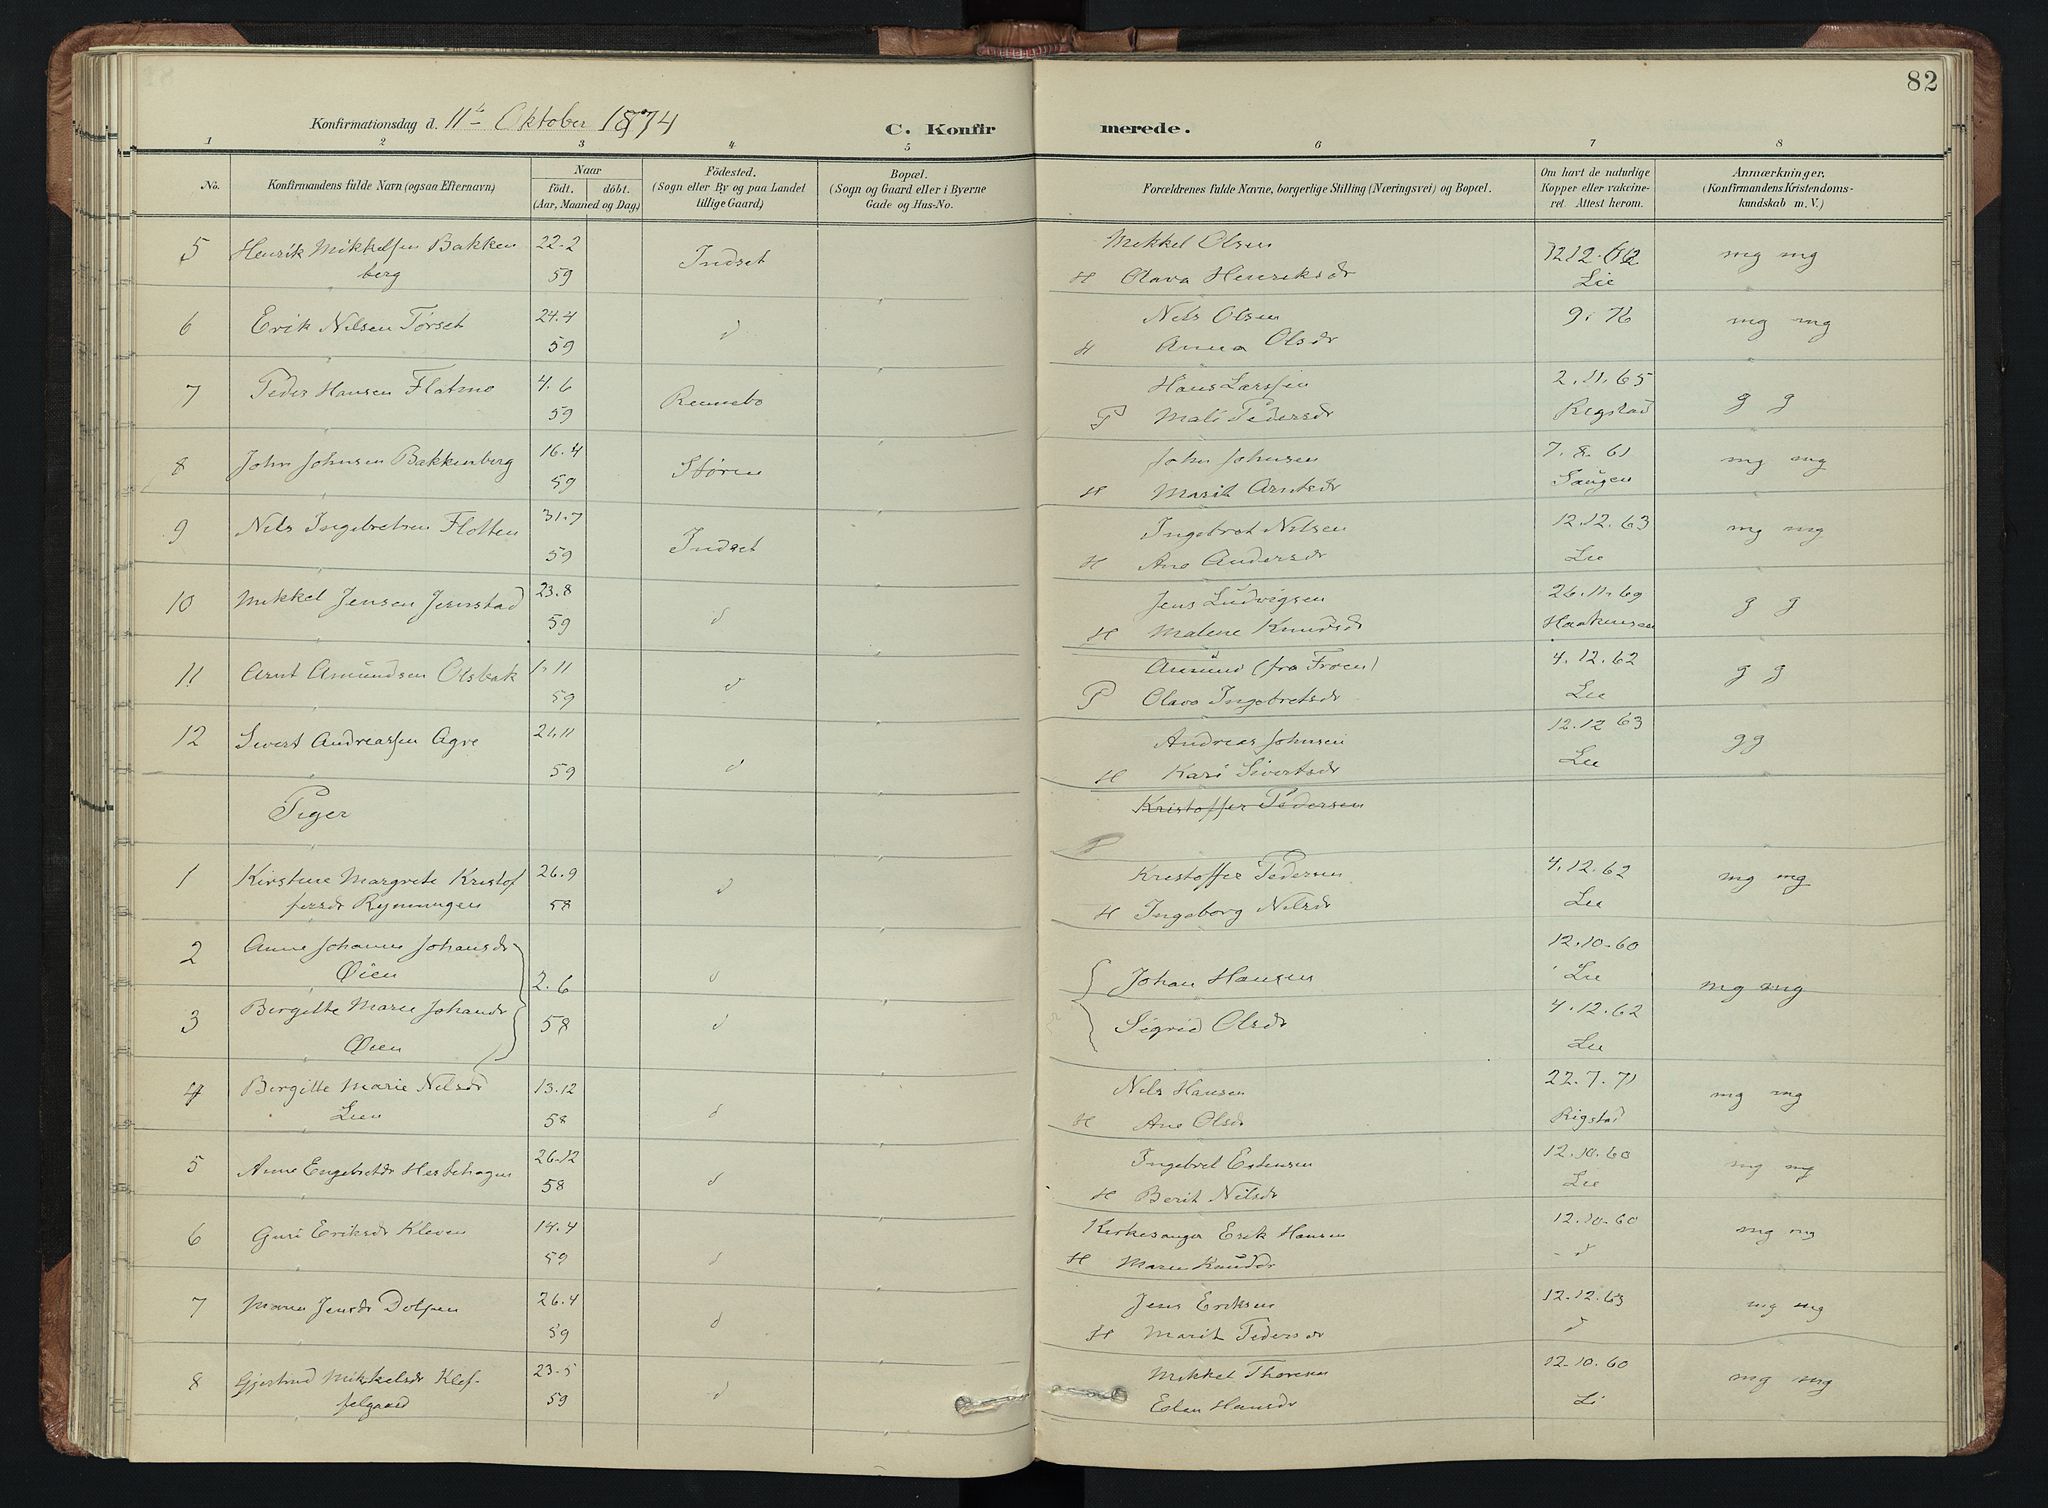 82
Konfirmationsdag d. 11te Oktober 1874
C. Konfirmerede.
1 2 3 4 5 6 7 8
No. Konfirmandens fulde Navn (ogsaa Efternavn) Naar født. døbt. (Aar, Maaned og Dag) Fødested. (Sogn eller By og paa Landet tillige Gaard) Bopæl. (Sogn og Gaard eller i Byerne Gade og Hus-No. Forældrenes fulde Navne, borgerlige Stilling (Næringsvei) og Bopæl. Om havt de naturlige Kopper eller vakcineret. Attest herom. Anmærkninger. (Konfirmandens Kristendomskundskab m. V.)
5 Henrik Mikkelsen Bakken 22-2 Indset Mikkel Olsen 1212.62 mg mg
berg 59 H Olava Henriksdr Lie
6 Erik Nilsen Tørset 24.4 d Nils Olsen mg mg
59 H Anna Olsdr
7 Peder Hansen Flatmo 4.6 Rennebo Hans Larssen 2.11.65 g g
59 P Mali Pedersdr Rigstad
8 John Johnsen Bakkenberg 16.4 Støren John Johnsen 7.8.61 mg mg
59 H Marit Arntsdr Saugen
9 Nils Ingebretsen Flotten 31.7 Indset Ingebret Nilsen 12.12.63 mg mg
59 H Ane Andersdr Lie
10 Mikkel Jensen Jernstad 23.8 d Jens Ludvigsen 26.11.69 g g
59 H Malene Knudsdr Haakensen
11 Arnt Amundsen Olsbak 1.11 d Amund (fra Froen) 4.12.62 g g
59 P Olava Ingebretsdr Lie
12 Sivert Andreassen Agre 21.11 d Andreas Johnsen 12.12 63 gg
59 H Kari Sivertsdr Lie
Piger Kristoffer Pedersen
1 Kirstine Margrete Kristof 26.9 d Kristoffer Pedersen 4.12.62 mg mg
fersdr Rymungen 58 H Ingeborg Nilsdr Lie
2 Anne Johanne Johansdr d 12.10-60
Øien 2.6 Johan Hansen Lie mg mg
3 Bergitte Marie Johansdr 58 d Sigrid Olsdr 4.12.62
Øien Lie
4 Bergitte Marie Nilsdr 13.12 d Nils Hansen 22.7.71 mg mg
Lien 58 H Ane Olsdr Rigstad
5 Anne Engebretsdr Hestehagen 26-12 d Ingebret Estensen 12.10.60 mg mg
58 H Berit Nilsdr Lie
6 Guri Eriksdr Kleven 14.4 d Kirkesanger Erik Hansen 12.10-60 mg mg
59 H Maren Knudsdr - d
7 Jensdr Dolpen 26.4 d Jens Eriksen 12.12.63 mg mg
59 H Marit Pedersdr d
8 Gjertrud Mikkelsdr Klef- 23-5 d Mikkel Thoresen 12.10.60 mg mg
felgaard 59 Eden Hansdr Li